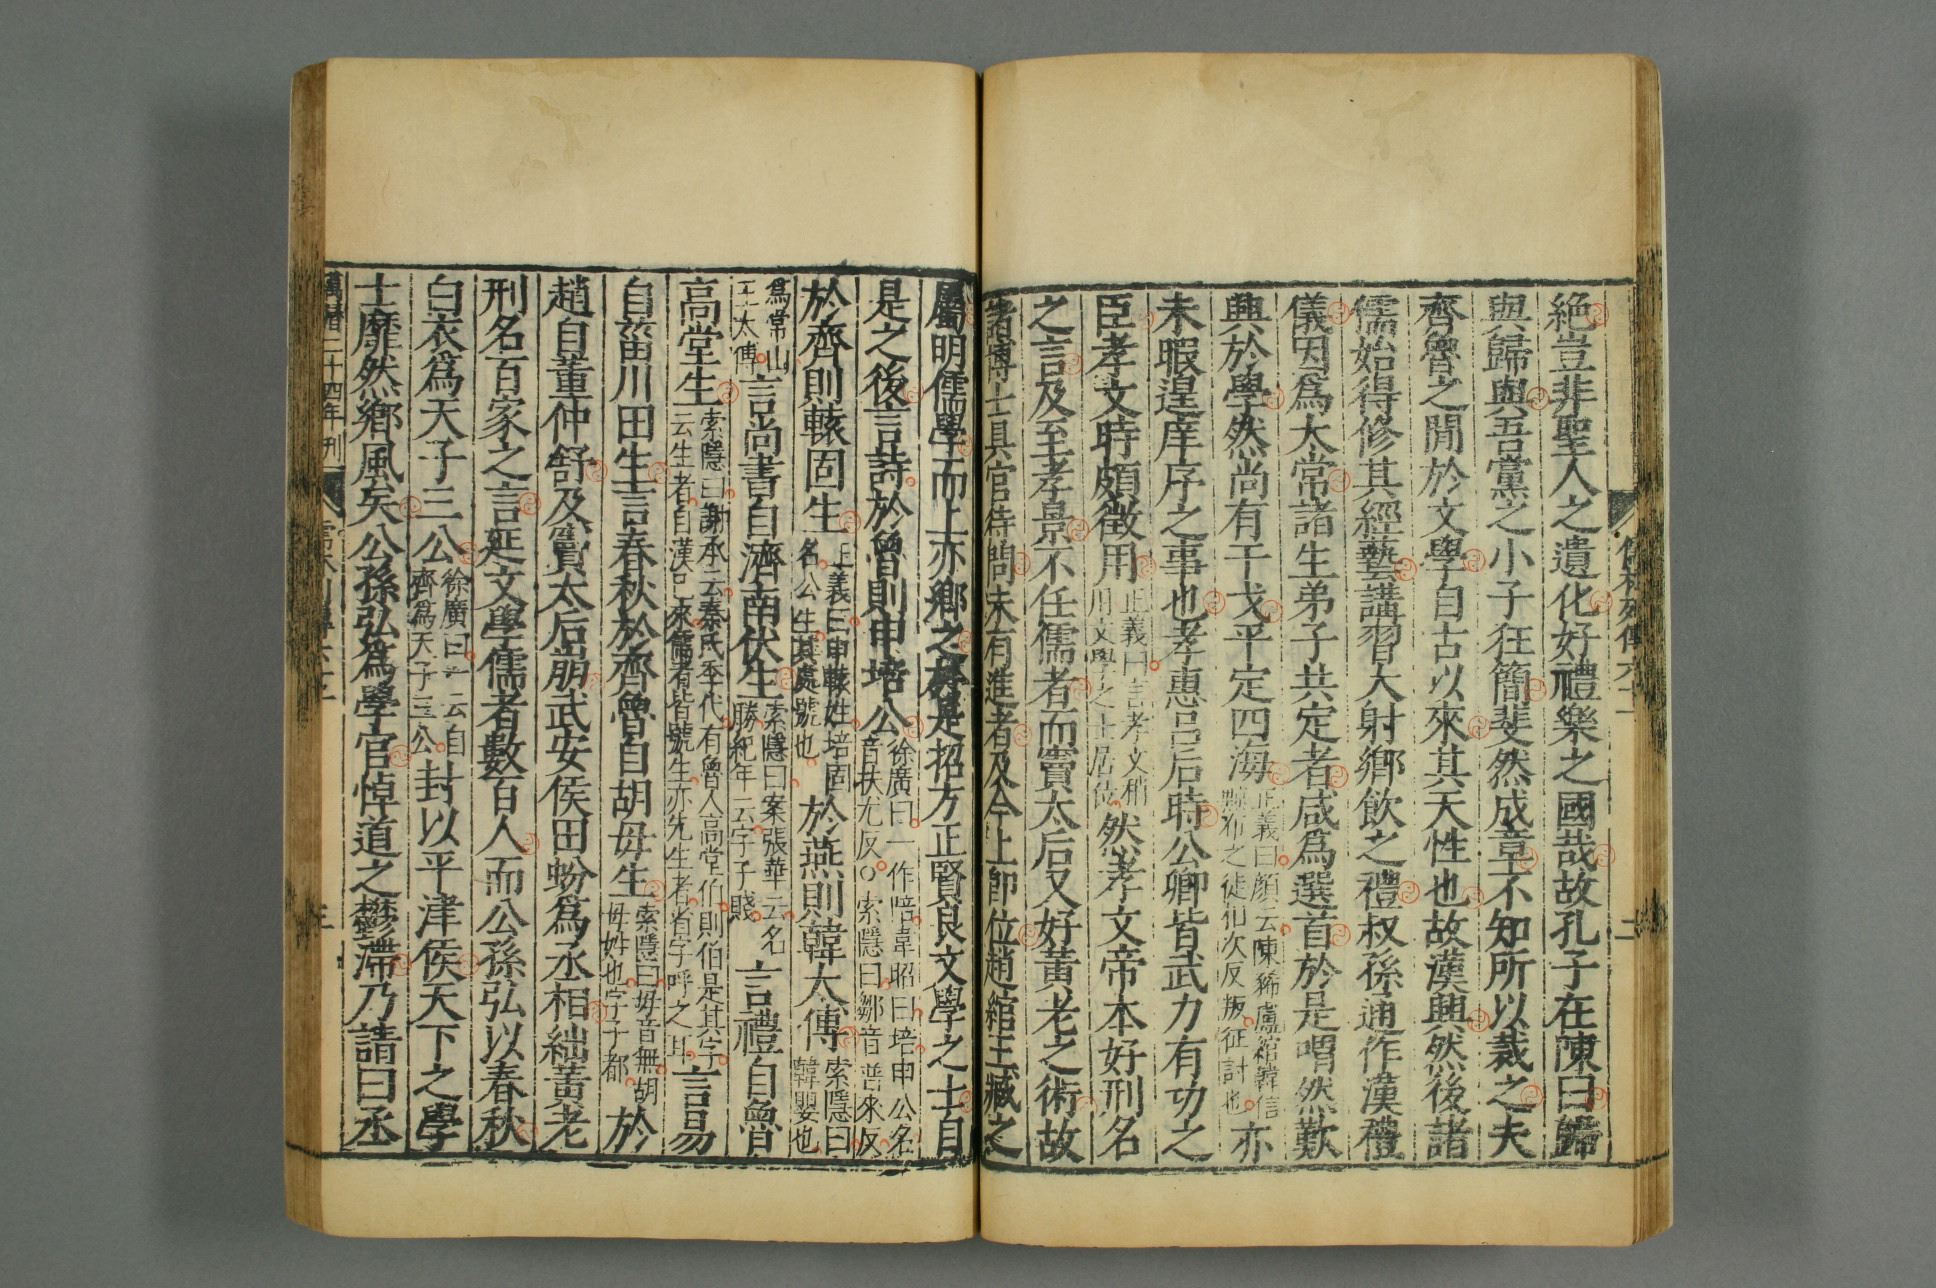 儒林列傳六十一
二
絶豈非聖人之遺化好禮樂之國哉故孔子在陳曰歸
與歸與吾黨之小子狂簡斐然成章不知所以裁之夫
齊魯之閒於文學自古以來其天性也故漢興然後諸
儒始得修其經藝講習大射鄉飲之禮叔孫通作漢禮
儀因爲太常諸生弟子共定者咸爲選首於是喟然歎
興於學然尚有干戈平定四海
正義曰顏云陳豨盧綰韓信
黥布之徒相次反叛征討也
亦
未暇遑庠序之事也孝惠呂后時公卿皆武力有功之
臣孝文時頗徵用
正義曰言孝文稍
用文學之士居位
然孝文帝本好刑名
之言及至孝景不任儒者而竇太后又好黃老之術故
諸博士具官待問未有進者及今上卽位趙綰王臧之
屬明儒學而上亦鄉之於是招方正賢良文學之士自
是之後言詩於魯則申培公
徐廣曰一作陪韋昭曰培申公名
音扶尤反○索隱曰鄒音普來反
於齊則轅固生
正義曰申轅姓培固
名公生其處號也
於燕則韓太傅
索隱曰
韓嬰也
爲常山
王太傅
言尚書自濟南伏生
索隱曰案張華云名
勝紀年云字子賤
言禮自魯
高堂生
索隱曰謝承云秦氏季代有魯人高堂伯則伯是其字
云生者自漢已來儒者皆號生亦先生者省字呼之耳
言易
自菑川田生言春秋於齊魯自胡毋生
索隱曰毋音無胡
毋姓也字子都
於
趙自董仲舒及竇太后崩武安侯田蚡爲丞相絀黃老
刑名百家之言延文學儒者數百人而公孫弘以春秋
白衣爲天子三公
徐廣曰一云自
齊爲天子三公
封以平津侯天下之學
士靡然鄉風矣公孫弘爲學官悼道之鬱滯乃請曰丞
萬曆二十四年刊
儒林列傳六十一
三